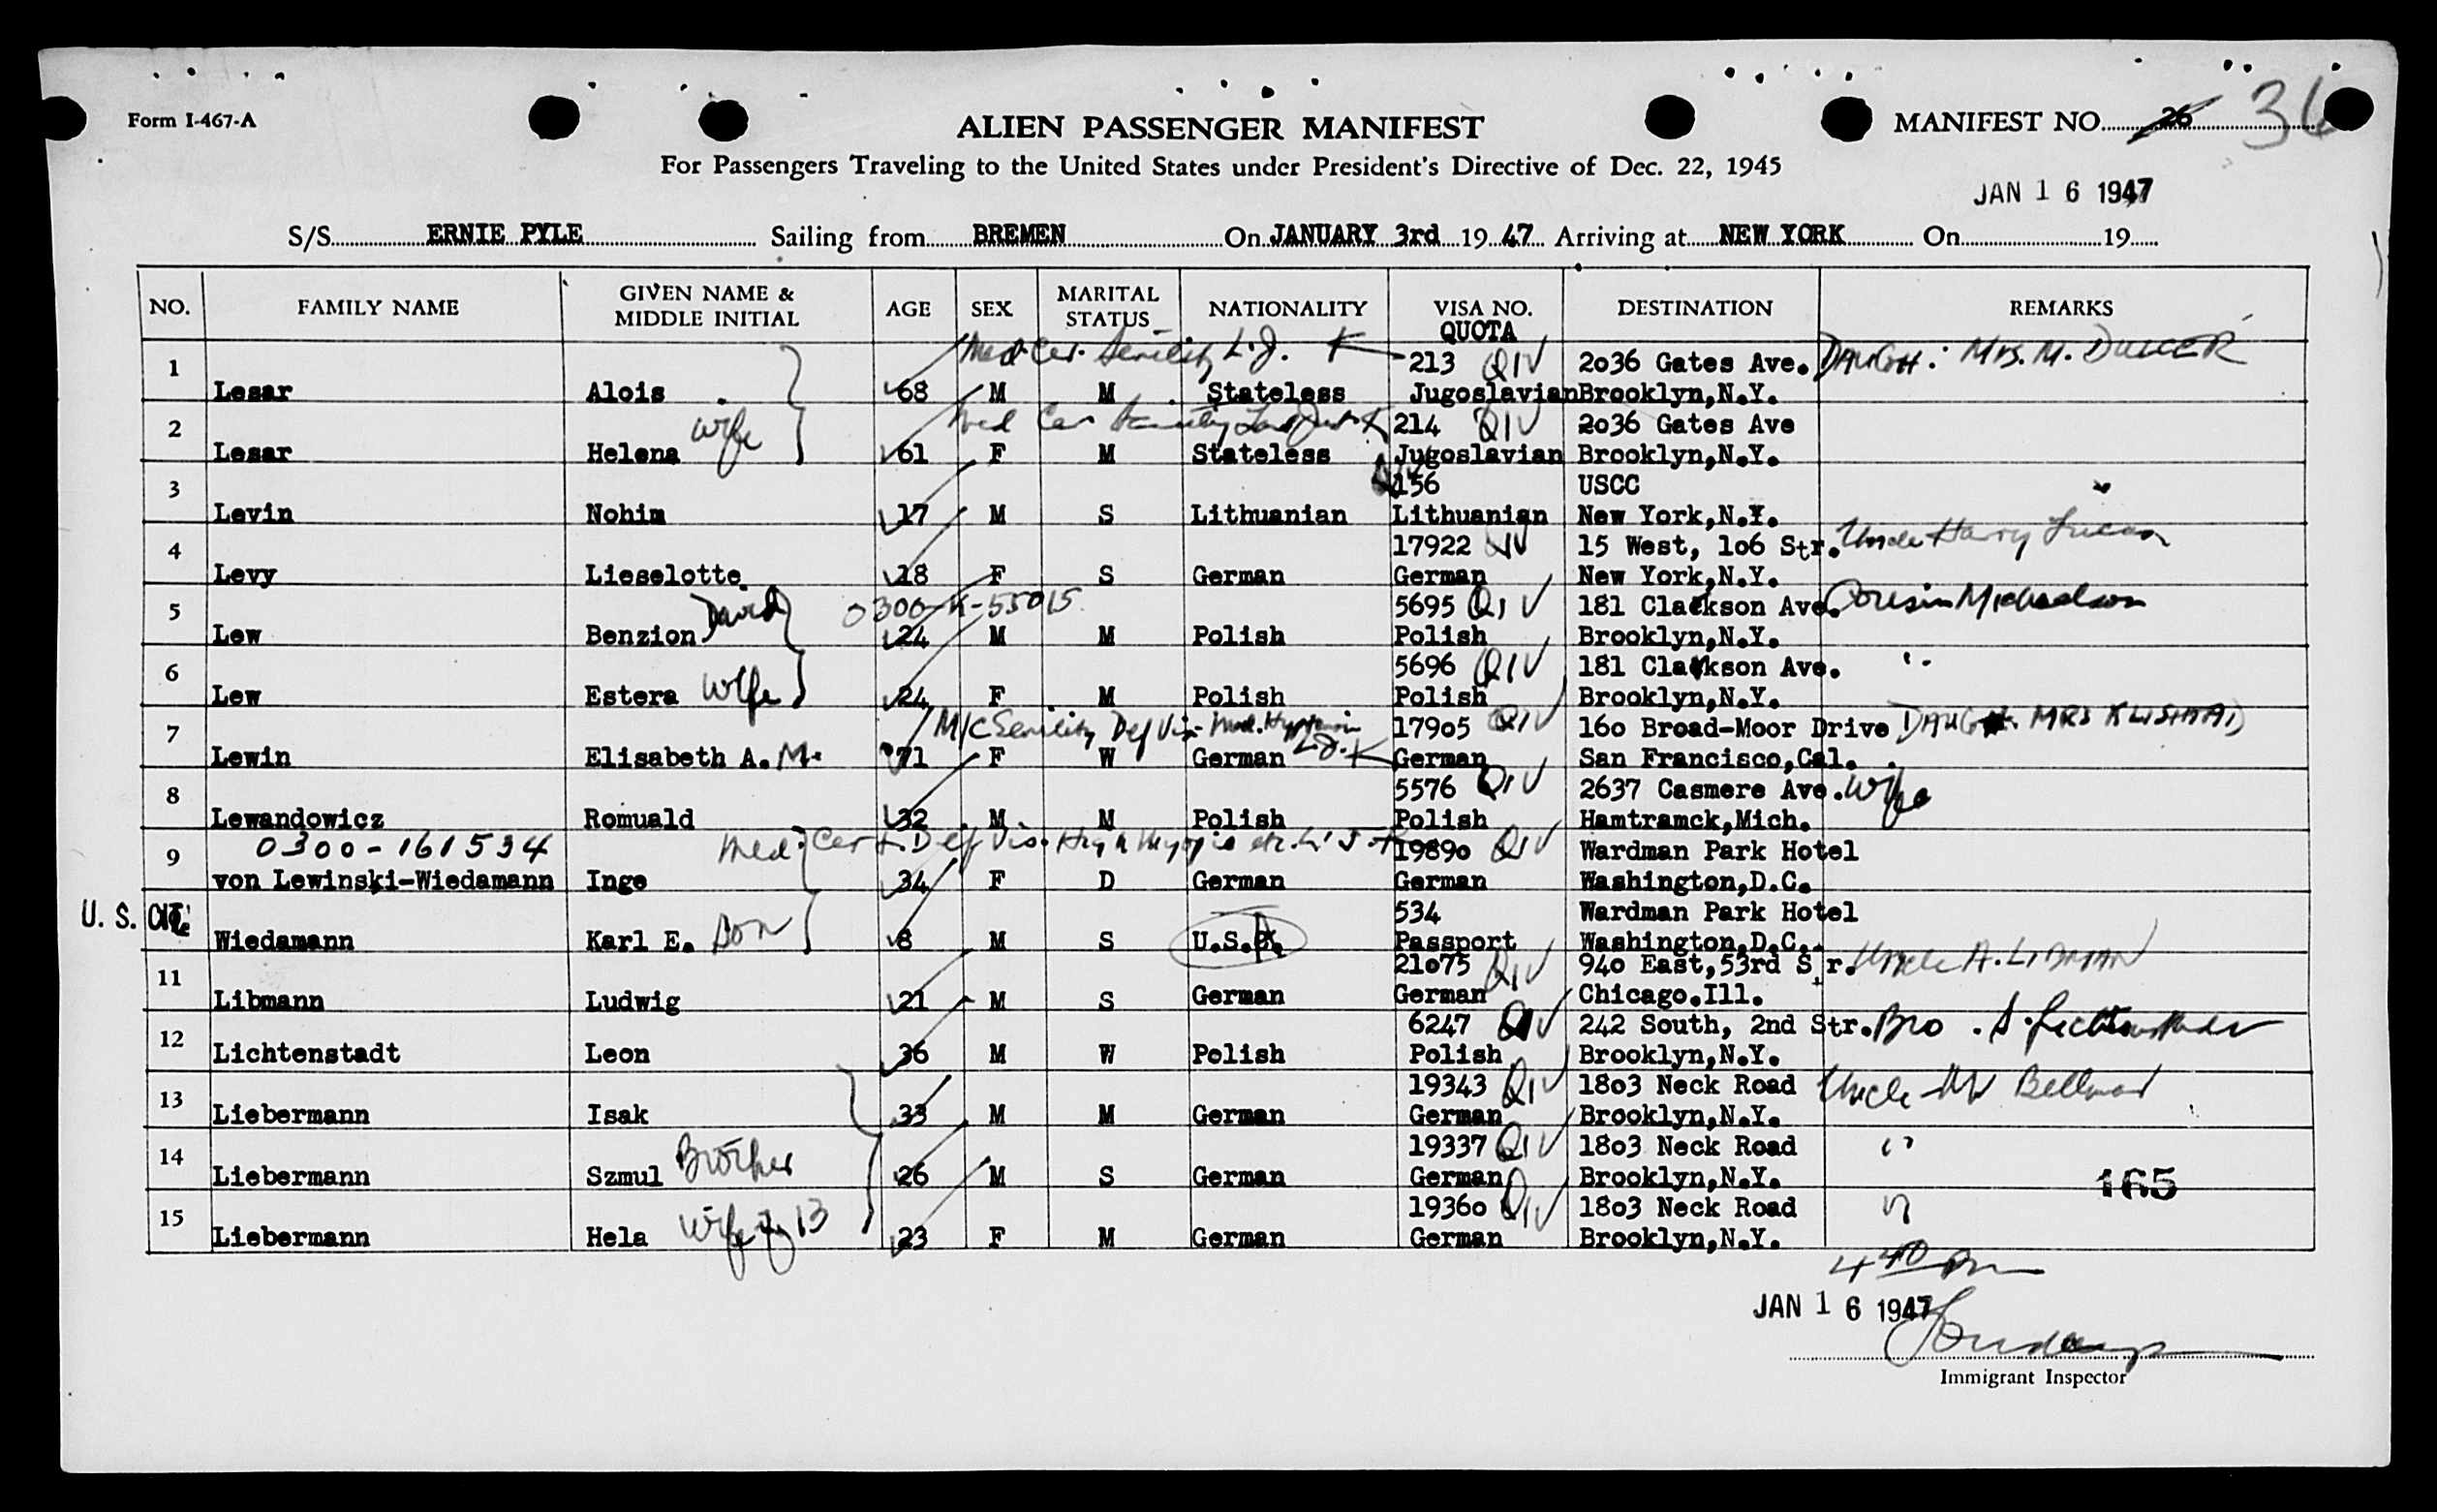 Form I-467-A
ALIEN PASSENGER MANIFEST
MANIFEST NO. 26 36
For Passengers Traveling to the United States under President's Directive of Dec. 22, 1945
JAN 16 1947
S/S ERNIE PYLE Sailing from BREMEN On JANUARY 3rd 19 47 Arriving at NEW YORK On 19
NO. FAMILY NAME GIVEN NAME & MIDDLE INITIAL AGE SEX MARITAL STATUS NATIONALITY VISA NO. QUOTA DESTINATION REMARKS
Med Cer. Senility L.J. K
1 213 QIV 2036 Gates Ave. DAUGH: Mrs. M.
Lesar Alois 68 M M Stateless Jugoslavian Brooklyn,N.Y.
Med Cer Senility K
2 wife 214 QIV 2036 Gates Ave
Lesar Helena 61 F M Stateless Jugoslavian Brooklyn,N.Y.
3 156 USCC
Levin Nohim 17 M S Lithuanian Lithuanian New York,N.Y.
4 17922 QIV 15 West, 106 Str. Uncle Harry
Levy Lieselotte 18 F S German German New York,N.Y.
5 David 0300-K-55015 5695 QIV 181 Clarkson Ave. Cousin Michaelson
Lew Benzion 24 M M Polish Polish Brooklyn,N.Y.
6 5696 QIV 181 Clarkson Ave. "
Lew Estera wife 24 F M Polish Polish Brooklyn,N.Y.
M/C Senility Def Vis.
7 17905 QIV 160 Broad-Moor Drive DAUGH. MRS
Lewin Elisabeth A. M. 71 F W German L.J. K German San Francisco,Cal.
8 5576 QIV 2637 Casmere Ave. Wife
Lewandowicz Romuald 32 M M Polish Polish Hamtramck,Mich.
0300-161534 Med. Cert. Def Vis. High Myopia etc. L.J. K
9 19890 QIV Wardman Park Hotel
von Lewinski-Wiedamann Inge 34 F D German German Washington,D.C.
U. S. CIT. 534 Wardman Park Hotel
Wiedamann Karl E. Son 8 M S U.S.A. Passport Washington,D.C.
11 21075 QIV 940 East,53rd Str. Uncle A. LIBMAN
Libmann Ludwig 21 M S German German Chicago.Ill.
12 6247 QIV 242 South, 2nd Str. Bro. S.
Lichtenstadt Leon 36 M W Polish Polish Brooklyn,N.Y.
13 19343 QIV 1803 Neck Road Uncle
Liebermann Isak 33 M M German German Brooklyn,N.Y.
14 Brother 19337 QIV 1803 Neck Road "
Liebermann Szmul 26 M S German German Brooklyn,N.Y.
165
15 Wife of 13 19360 QIV 1803 Neck Road "
Liebermann Hela 23 F M German German Brooklyn,N.Y.
4 40 Pm
JAN 16 1947
Immigrant Inspector